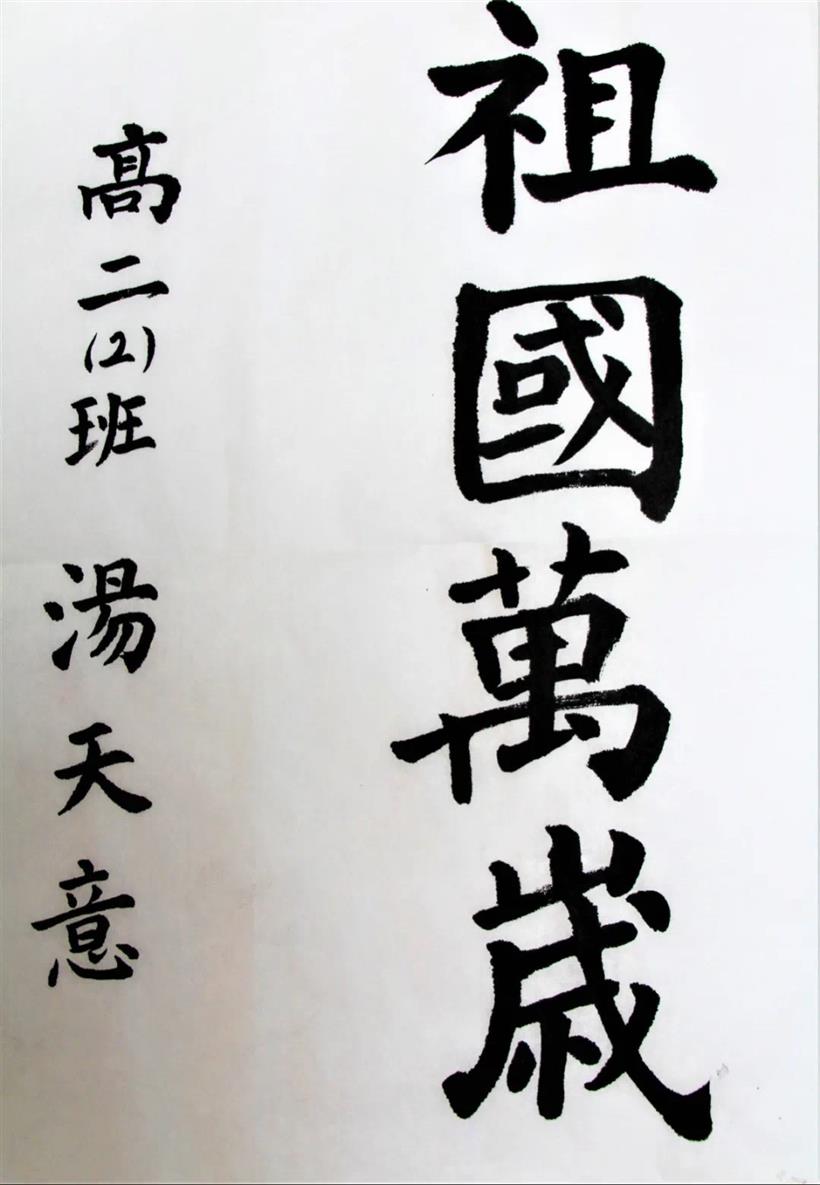 祖國萬歲
高二(2)班 湯天意